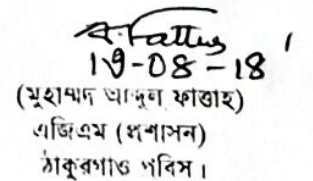 A. Fattus
19-08-18
(মুহাম্মদ আব্দুল ফাত্তাহ)
এজিএম (প্রশাসন)
ঠাকুরগাঁও পবিস।